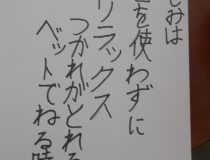 しみは
を使わずに
リラックス
つかれがとれる
ベットでねる時